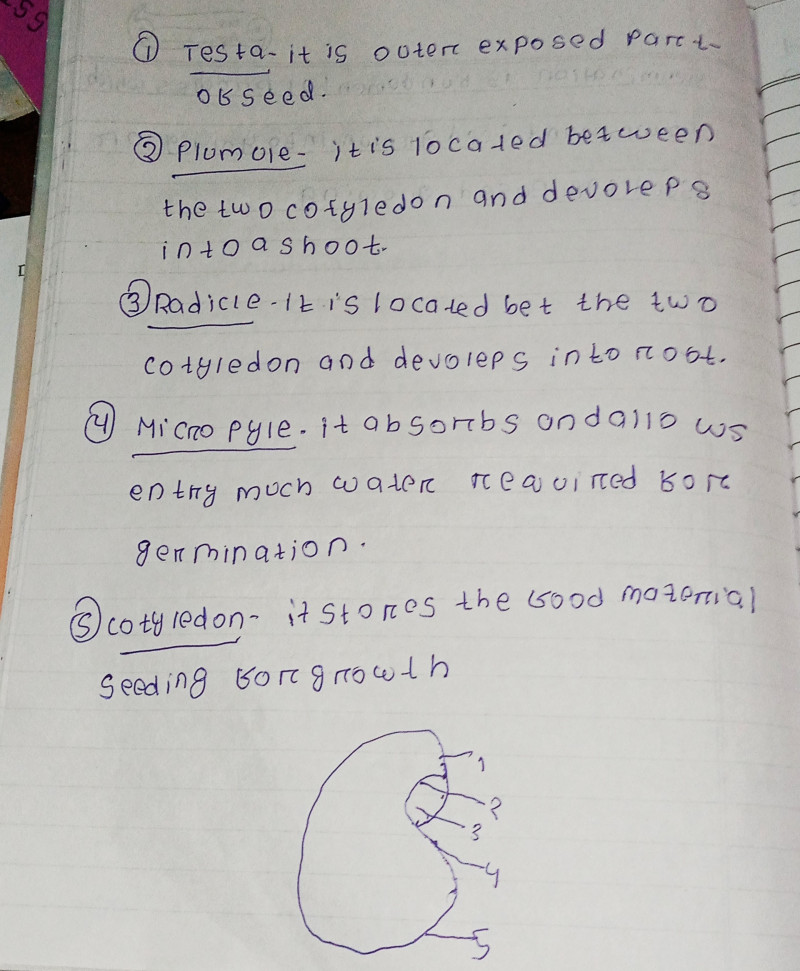 ① Testa- it is outer exposed part
of seed.
② Plumule- it is located between
the two cotyledon and devoleps
into a shoot.
③ Radicle-It is located bet the two
cotyledon and devoleps into root.
④ Micropyle. it absorbs and allows
entry much water required for
germination.
⑤ cotyledon- it stores the food material
seeding for growth
1
2
3
4
5